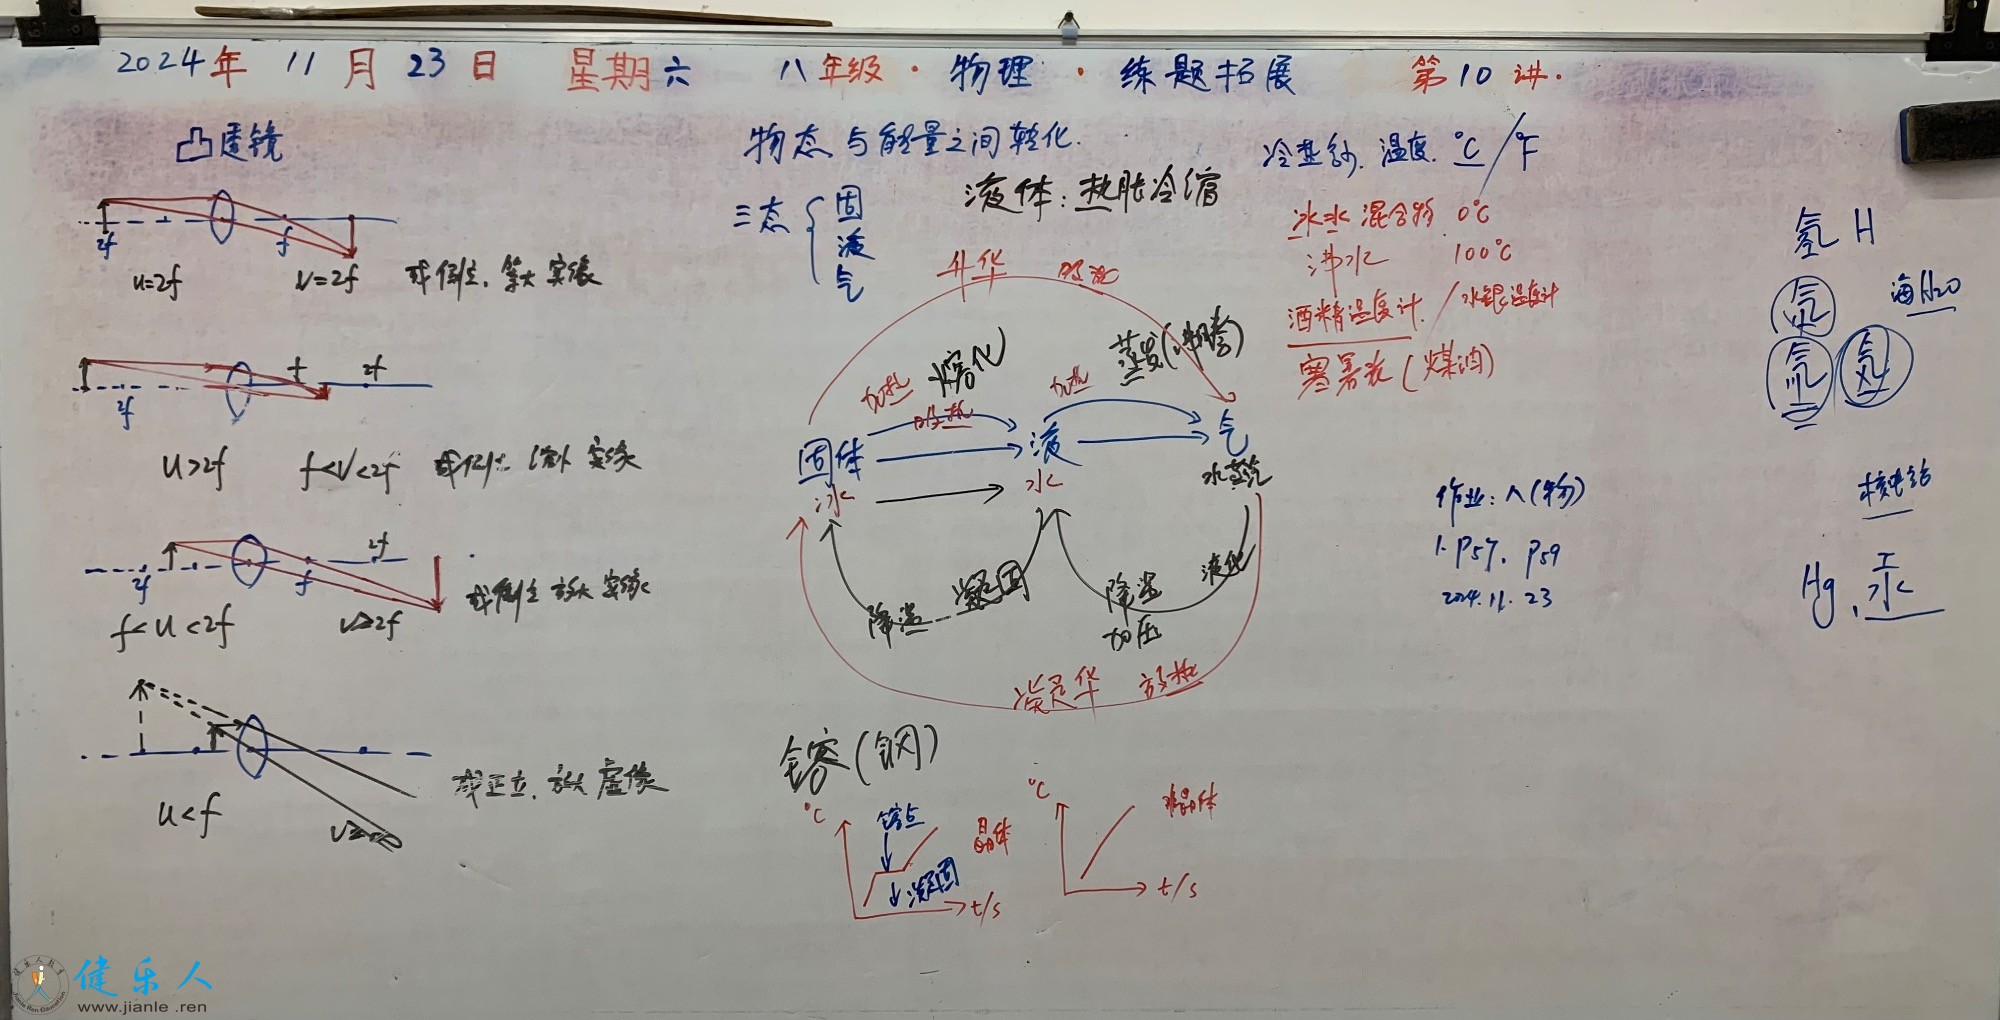 2024年 11月 23日 星期六 八年级·物理·练题拓展 第10讲.
凸透镜
2f f
u=2f v=2f 成倒立. 等大 实像
2f f 2f
u>2f f<v<2f 成倒立 缩小 实像
2f f 2f
f<u<2f v>2f 成倒立 放大 实像
u<f
成正立. 放大 虚像
物态与能量之间转化.
三态 { 固 液 气
液体: 热胀冷缩
升华 吸热
加热 熔化 加热 蒸发(沸腾)
吸热
固体 液 气
冰 水 水蒸汽
降温 凝固 降温 液化
加压
凝华 放热
熔(钢)
°C 熔点 晶体
凝固
t/s
°C 非晶体
t/s
温度. °C/°F
冰水 混合物 0°C
沸水 100°C
酒精温度计/水银温度计
寒暑表(煤油)
作业: 八(物)
1. P57. P59
2024. 11. 23
氢 H
氘
氚
海H2O
核电站
Hg. 汞
健乐人
www.jianle.ren